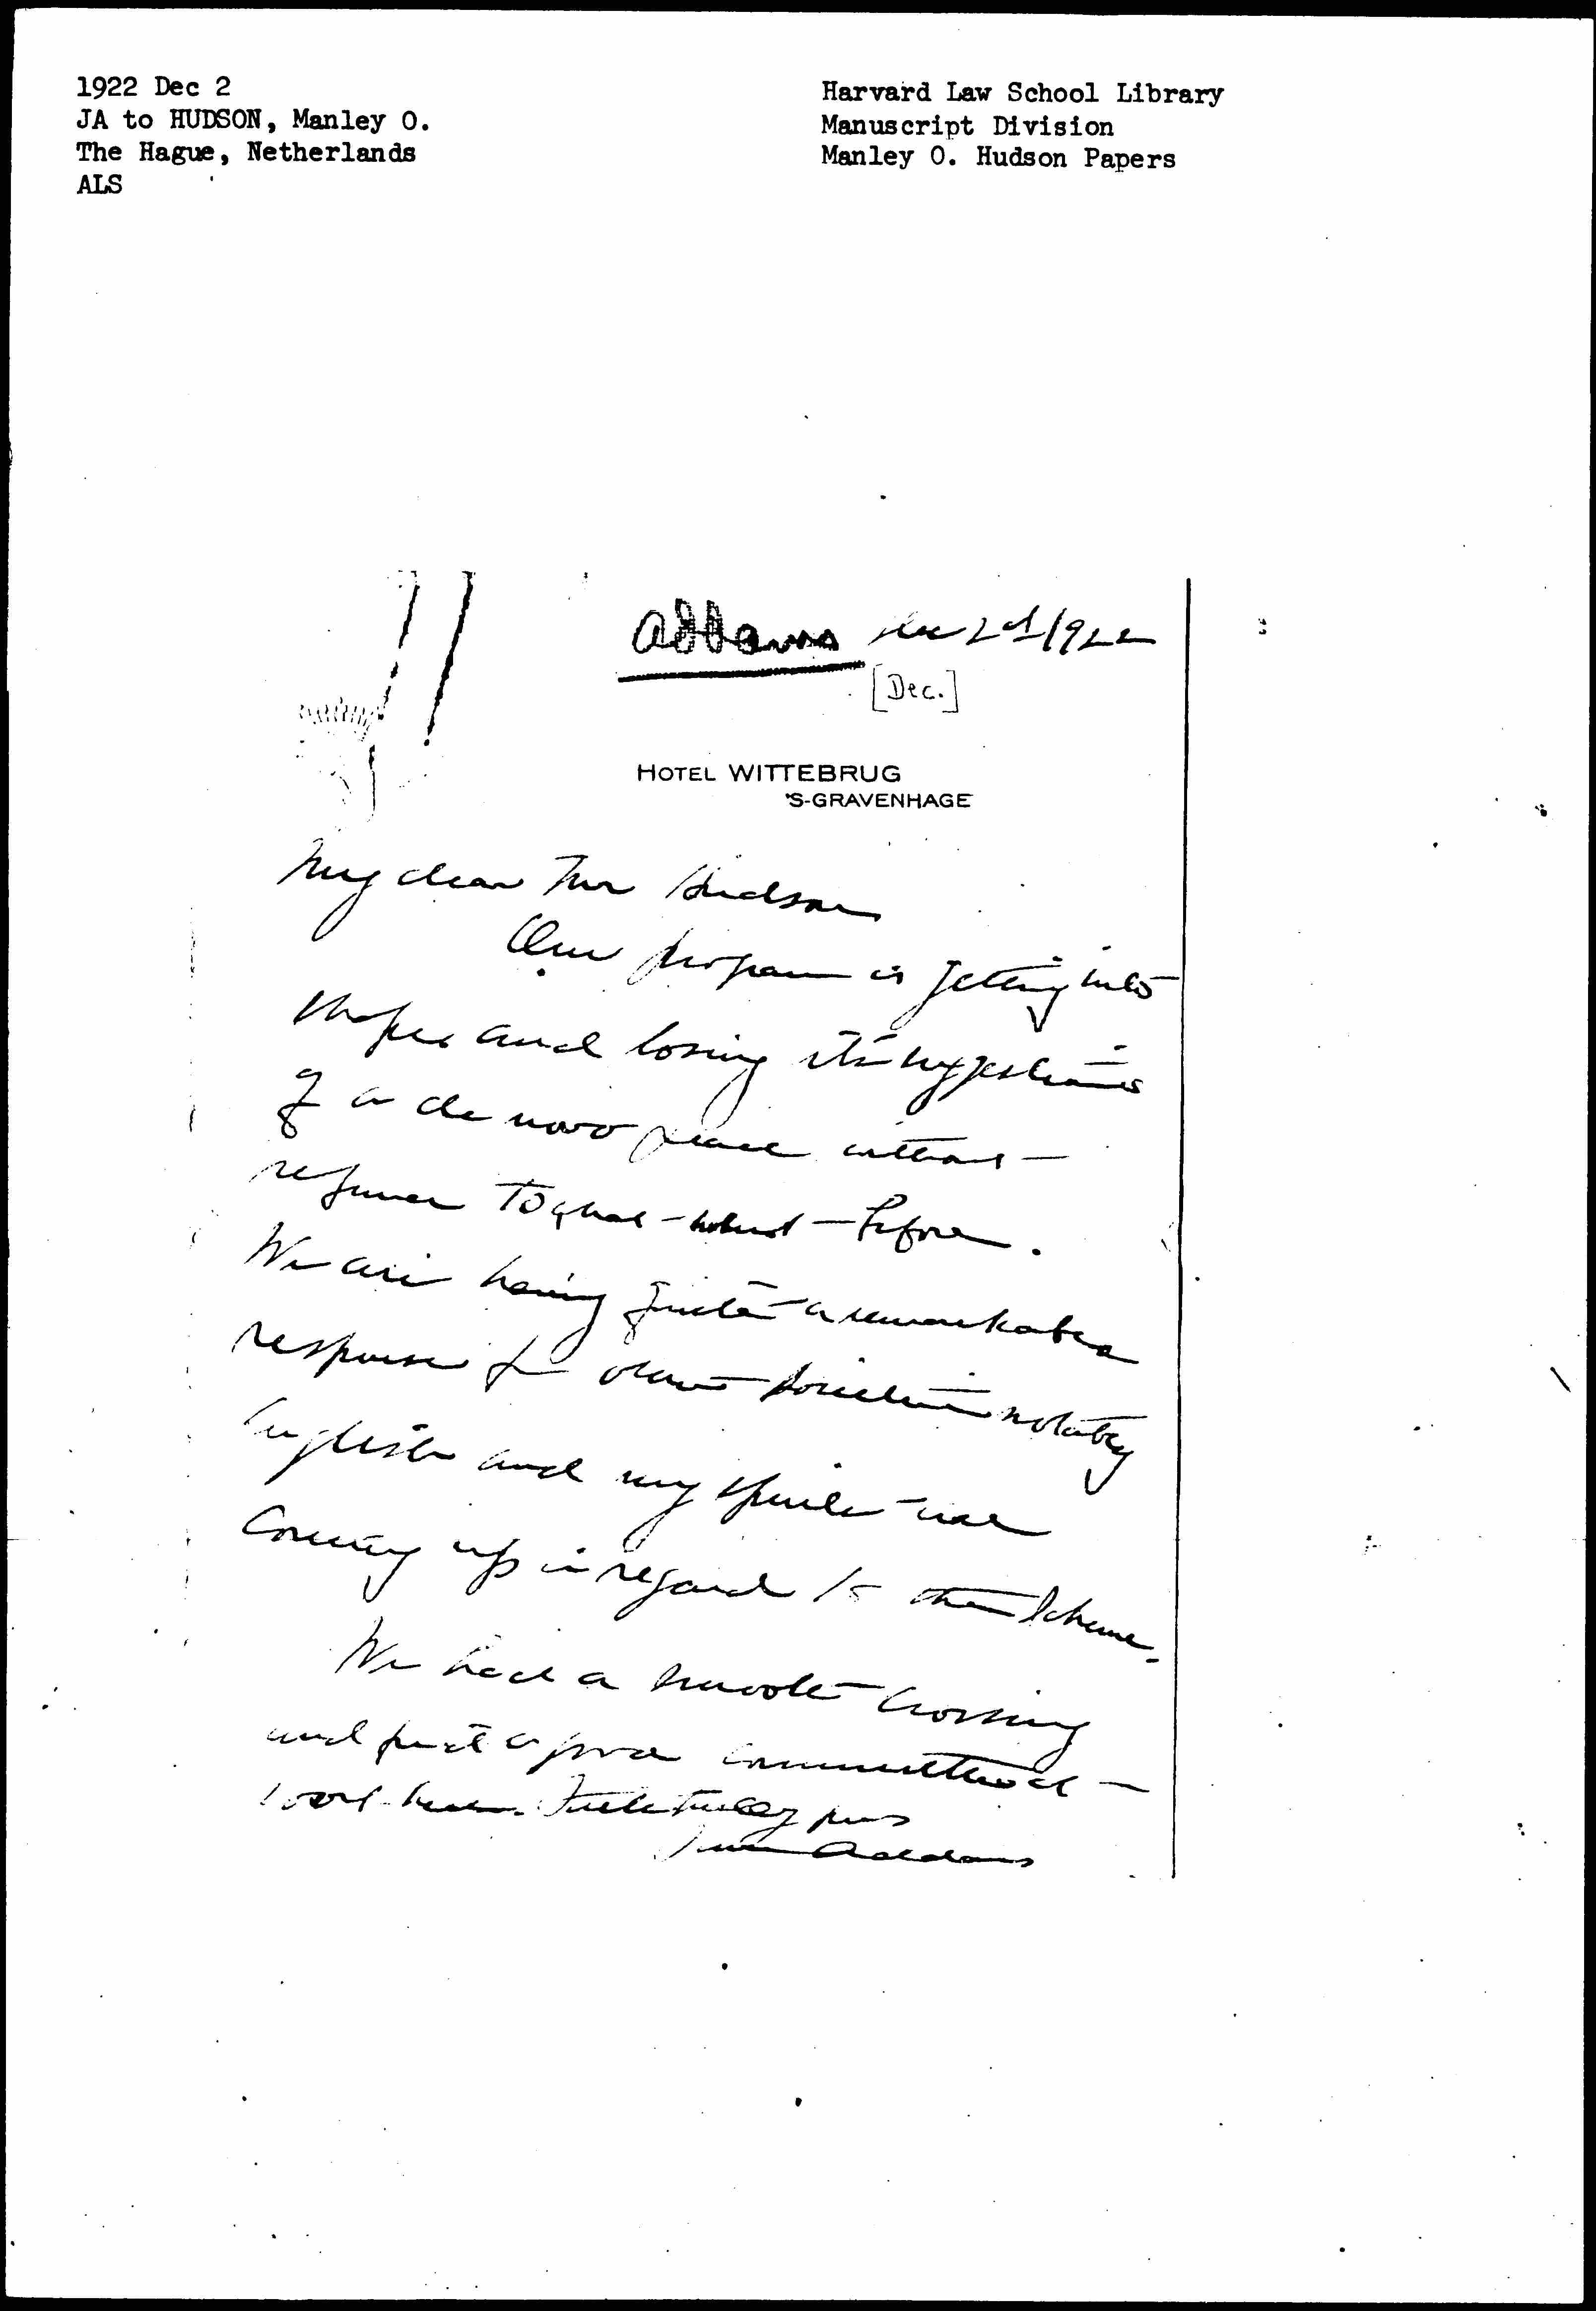 1922 Dec 2
JA to HUDSON, Manley O.
The Hague, Netherlands
ALS
Harvard Law School Library
Manuscript Division
Manley O. Hudson Papers
Addams Dec 2d 1922
[Dec.]
HOTEL WITTEBRUG
'S-GRAVENHAGE
My dear Mr Hudson
Our program is getting into
shape and losing its suggestions
of a de novo peace without
reference to what went before.
We are having quite a remarkable
response from other societies notably
English and my spirits are
coming up in regard to the scheme.
We had a smooth crossing
and find a good committee at
work here. Faithfully yours
Jane Addams